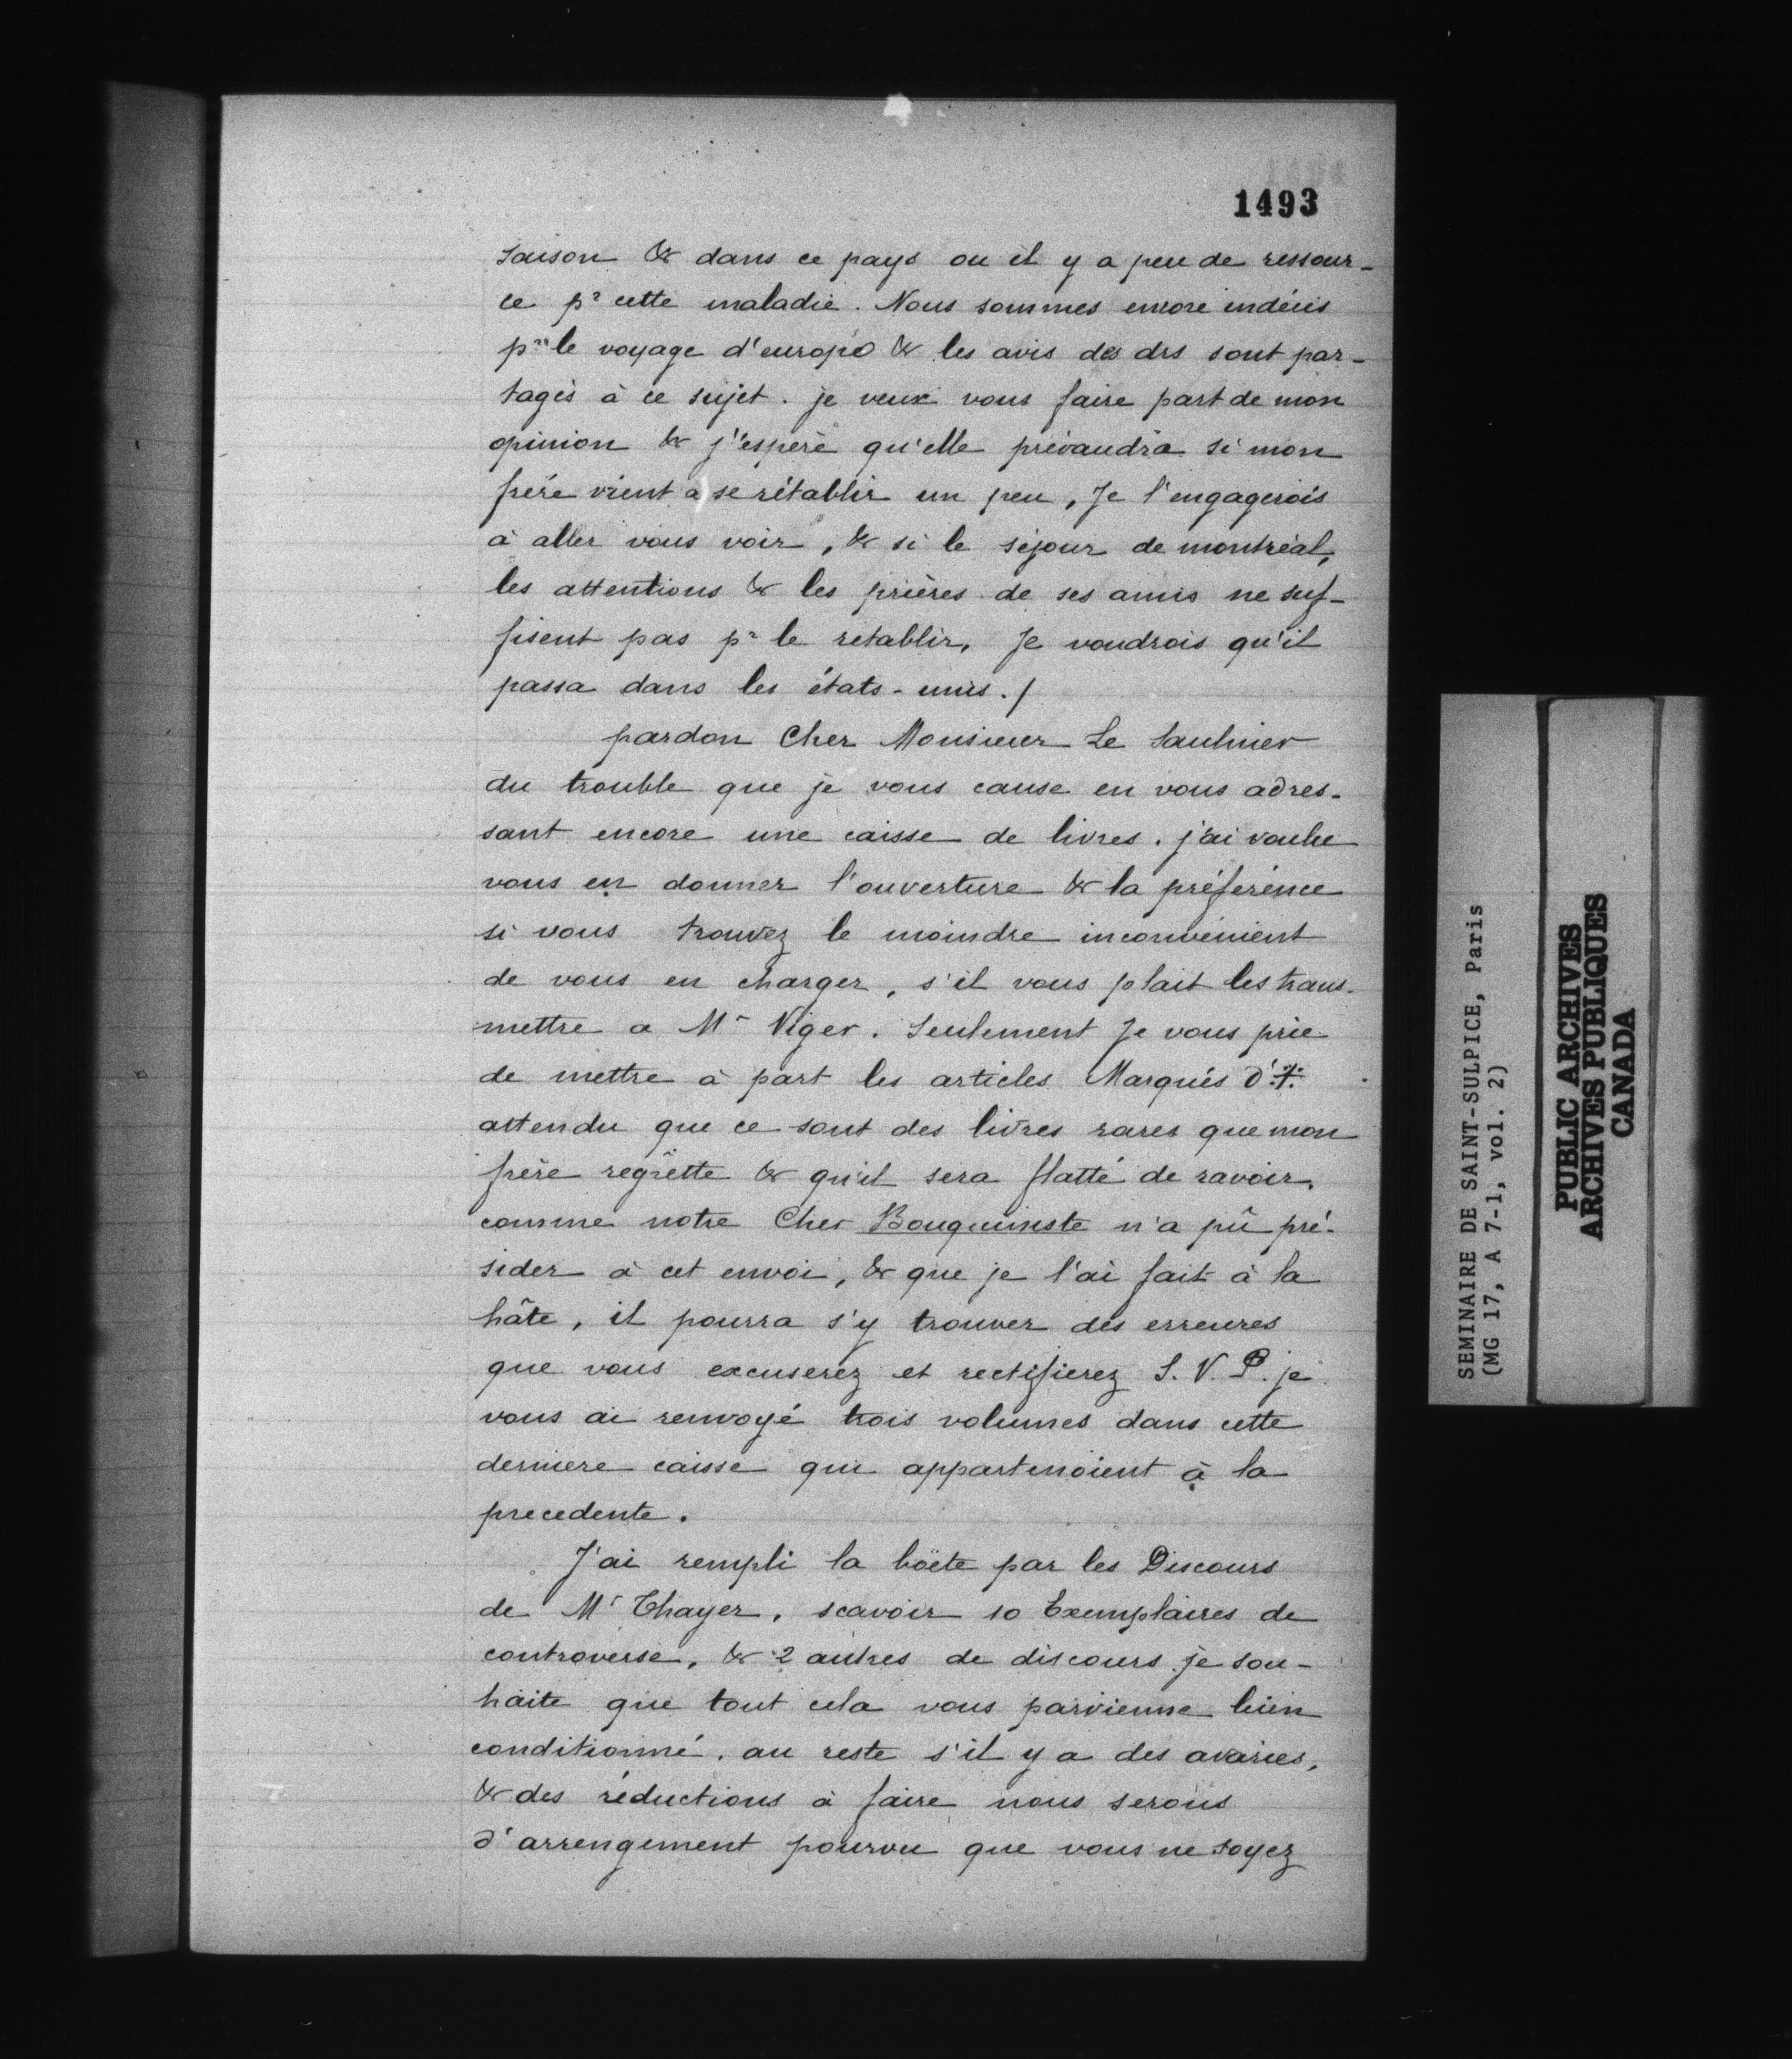 1493
saison & dans ce pays ou il y a peu de ressour-
ce pr cette maladie. Nous sommes encore indécis
pr le voyage d'europe & les avis des drs sont par-
tagés à ce sujet. je veux vous faire part de mon
opinion & j'espere qu'elle prévaudra si mon
frére vient a se rétablir un peu, Je l'engagerois
à aller vous voir, & si le séjour de montréal,
les attentions & les prières de ses amis ne suf-
fisent pas pr le retablir, Je voudrois qu'il
passa dans les états-unis./
pardon Cher Monsieur Le Saulnier
du trouble que je vous cause en vous adres-
sant encore une caisse de livres. j'ai voulu
vous en donner l'ouverture & la préférence
si vous trouvez le moindre inconvénient
de vous en charger, s'il vous plait les trans-
mettre a Mr Viger. Seulement Je vous prie
de mettre à part les articles Marqués d'‡
attendu que ce sont des livres rares que mon
frère regrette & qu'il sera flatté de ravoir.
comme notre Cher Bouquiniste n'a pû pré-
sider à cet envoi, & que je l'ai fait à la
hâte, il pourra s'y trouver des erreures
que vous excuserez et rectifierez S. V. P. je
vous ai renvoyé trois volumes dans cette
derniere caisse qui appartenoient à la
precedente.
J'ai rempli la boëte par les Discours
de Mr Thayer, scavoir 10 Exemplaires de
controverse, & 2 autres de discours je sou-
haite que tout cela vous parvienne bien
conditionné. au reste s'il y a des avaries,
& des réductions à faire nous serons
d'arrengement pourvu que vous ne soyez
SEMINAIRE DE SAINT-SULPICE, Paris
(MG 17, A 7-1, vol. 2)
PUBLIC ARCHIVES
ARCHIVES PUBLIQUES
CANADA